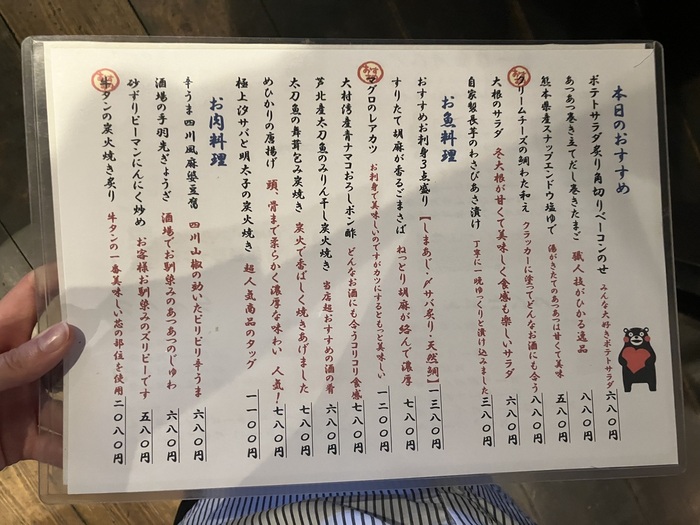 本日のおすすめ
ポテトサラダ炙り角切りベーコンのせ みんな大好きポテトサラダ 六八〇円
あつあつ巻き立てだし巻きたまご 職人技がひかる逸品 八八〇円
熊本県産スナップエンドウ塩ゆで 湯がきたてのあつあつは甘くて美味 五八〇円
おすすめ クリームチーズの鯛わた和え クラッカーに塗ってどんなお酒にも合う 八八〇円
大根のサラダ 冬大根が甘くて美味しく食感も楽しいサラダ 六八〇円
自家製長芋のわさびあさ漬け 丁寧に一晩ゆっくりと漬け込みました 三八〇円
お魚料理
おすすめお刺身3点盛り 【しまあじ・〆サバ炙り・天然鯛】 一三八〇円
すりたて胡麻が香るごまさば ねっとり胡麻が絡んで濃厚 七八〇円
おすすめ マグロのレアカツ お刺身で美味しいのですがカツにするともっと美味しい 一二八〇円
大村湾産青ナマコおろしポン酢 どんなお酒にも合うコリコリ食感 七八〇円
芦北産太刀魚のみりん干し炭火焼き 当店超おすすめの酒の肴 六八〇円
太刀魚の舞茸包み炭火焼き 炭火で香ばしく焼きあげました 七八〇円
めひかりの唐揚げ 頭、骨まで柔らかく濃厚な味わい 人気！ 七八〇円
極上汐サバと明太子の炭火焼き 超人気商品のタッグ 一一八〇円
お肉料理
辛うま四川風麻婆豆腐 四川山椒の効いたピリピリ辛うま 六八〇円
酒場の手羽先ぎょうざ 酒場でお馴染みのあつあつのじゅわ 六八〇円
砂ずりピーマンにんにく炒め お客様お馴染みのズリピーです 五八〇円
おすすめ 牛タンの炭火焼き炙り 牛タンの一番美味しい芯の部位を使用 二〇八〇円